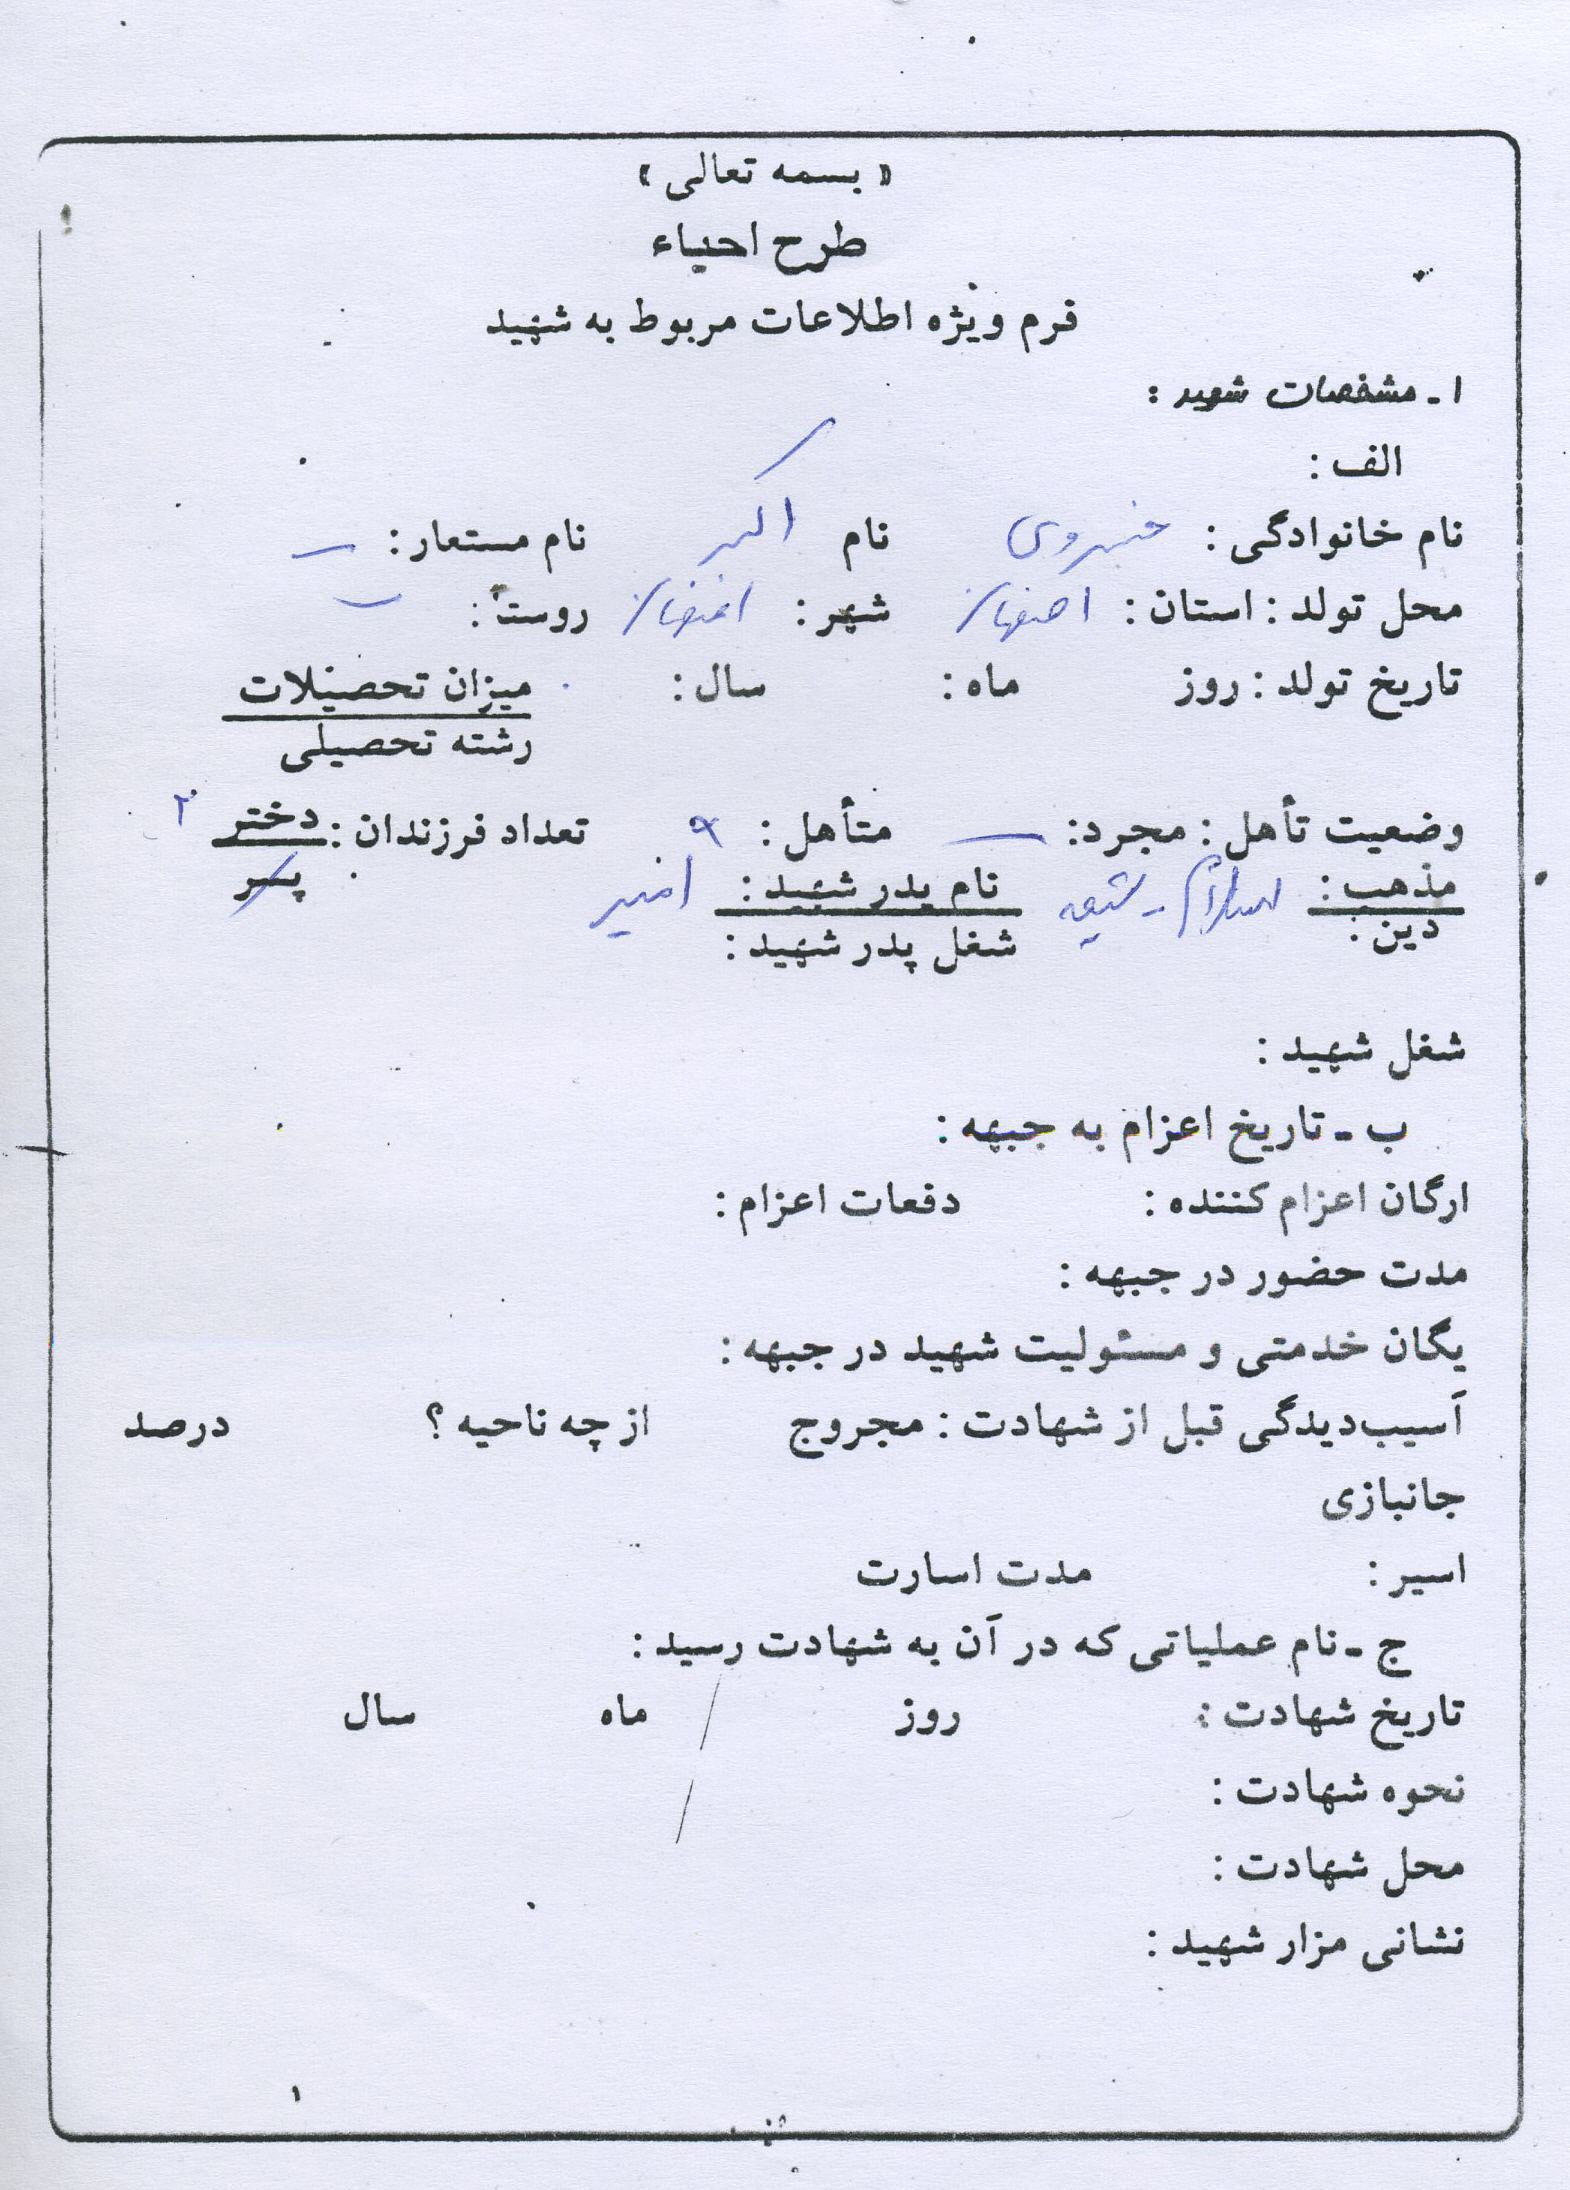 « بسمه تعالی »
طرح احیاء
فرم ویژه اطلاعات مربوط به شهید
۱ - مشخصات شهید :
الف :
نام خانوادگی : خسروی نام اکبر نام مستعار : –
محل تولد : استان : اصفهان شهر : اصفهان روستا : –
تاریخ تولد : روز ماه : سال : میزان تحصیلات
رشته تحصیلی
وضعیت تأهل : مجرد : – متأهل : تعداد فرزندان : دختر ۲
پسر
مذهب : اسلام - شیعه نام پدر شهید :
دین : شغل پدر شهید :
شغل شهید :
ب - تاریخ اعزام به جبهه :
ارگان اعزام کننده : دفعات اعزام :
مدت حضور در جبهه :
یگان خدمتی و مسئولیت شهید در جبهه :
آسیب‌دیدگی قبل از شهادت : مجروح از چه ناحیه ؟ درصد
جانبازی
اسیر : مدت اسارت
ج - نام عملیاتی که در آن به شهادت رسید :
تاریخ شهادت : روز ماه سال
نحوه شهادت :
محل شهادت :
نشانی مزار شهید :
۱